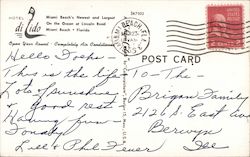 HOTEL
di Lido
Miami Beach's Newest and Largest
On the Ocean at Lincoln Road
Miami Beach • Florida
Open Year Round - Completely Air Conditioned
POST CARD
Hello Folks -
This is the life
Lots of sunshine
good rest
Having fun -
Sonny
Lee & Phil Fever
To - The -
Brigan Family
2126 S. East Ave
Berwyn
Ill